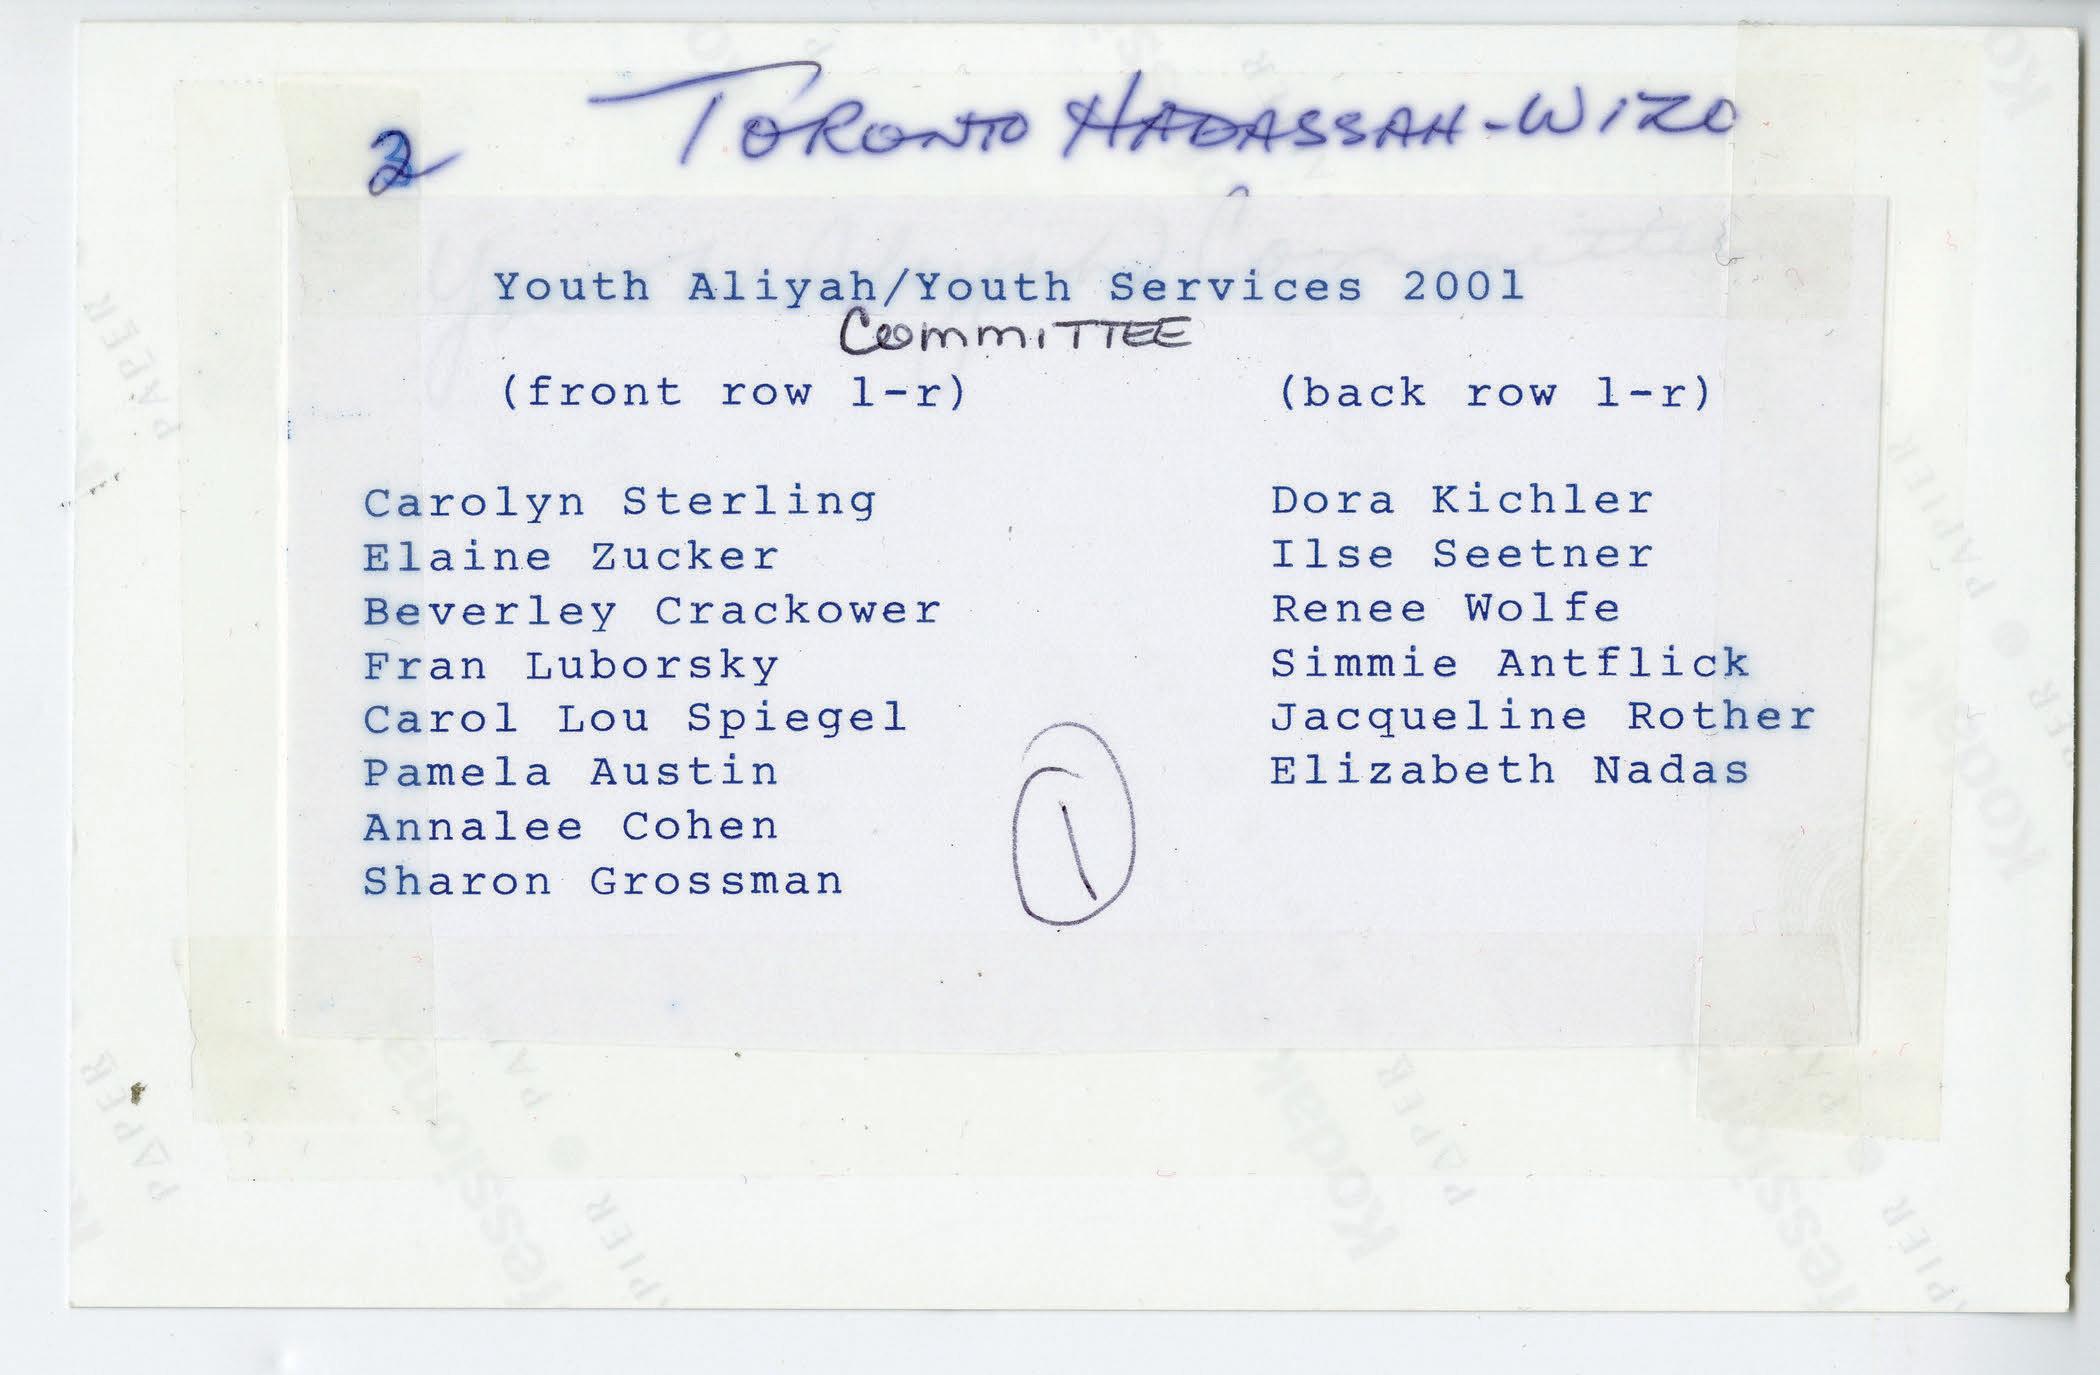 2 TORONTO HADASSAH-WIZO
Youth Aliyah/Youth Services 2001
COMMITTEE
(front row l-r) (back row l-r)
Carolyn Sterling Dora Kichler
Elaine Zucker Ilse Seetner
Beverley Crackower Renee Wolfe
Fran Luborsky Simmie Antflick
Carol Lou Spiegel Jacqueline Rother
Pamela Austin Elizabeth Nadas
Annalee Cohen
Sharon Grossman
1